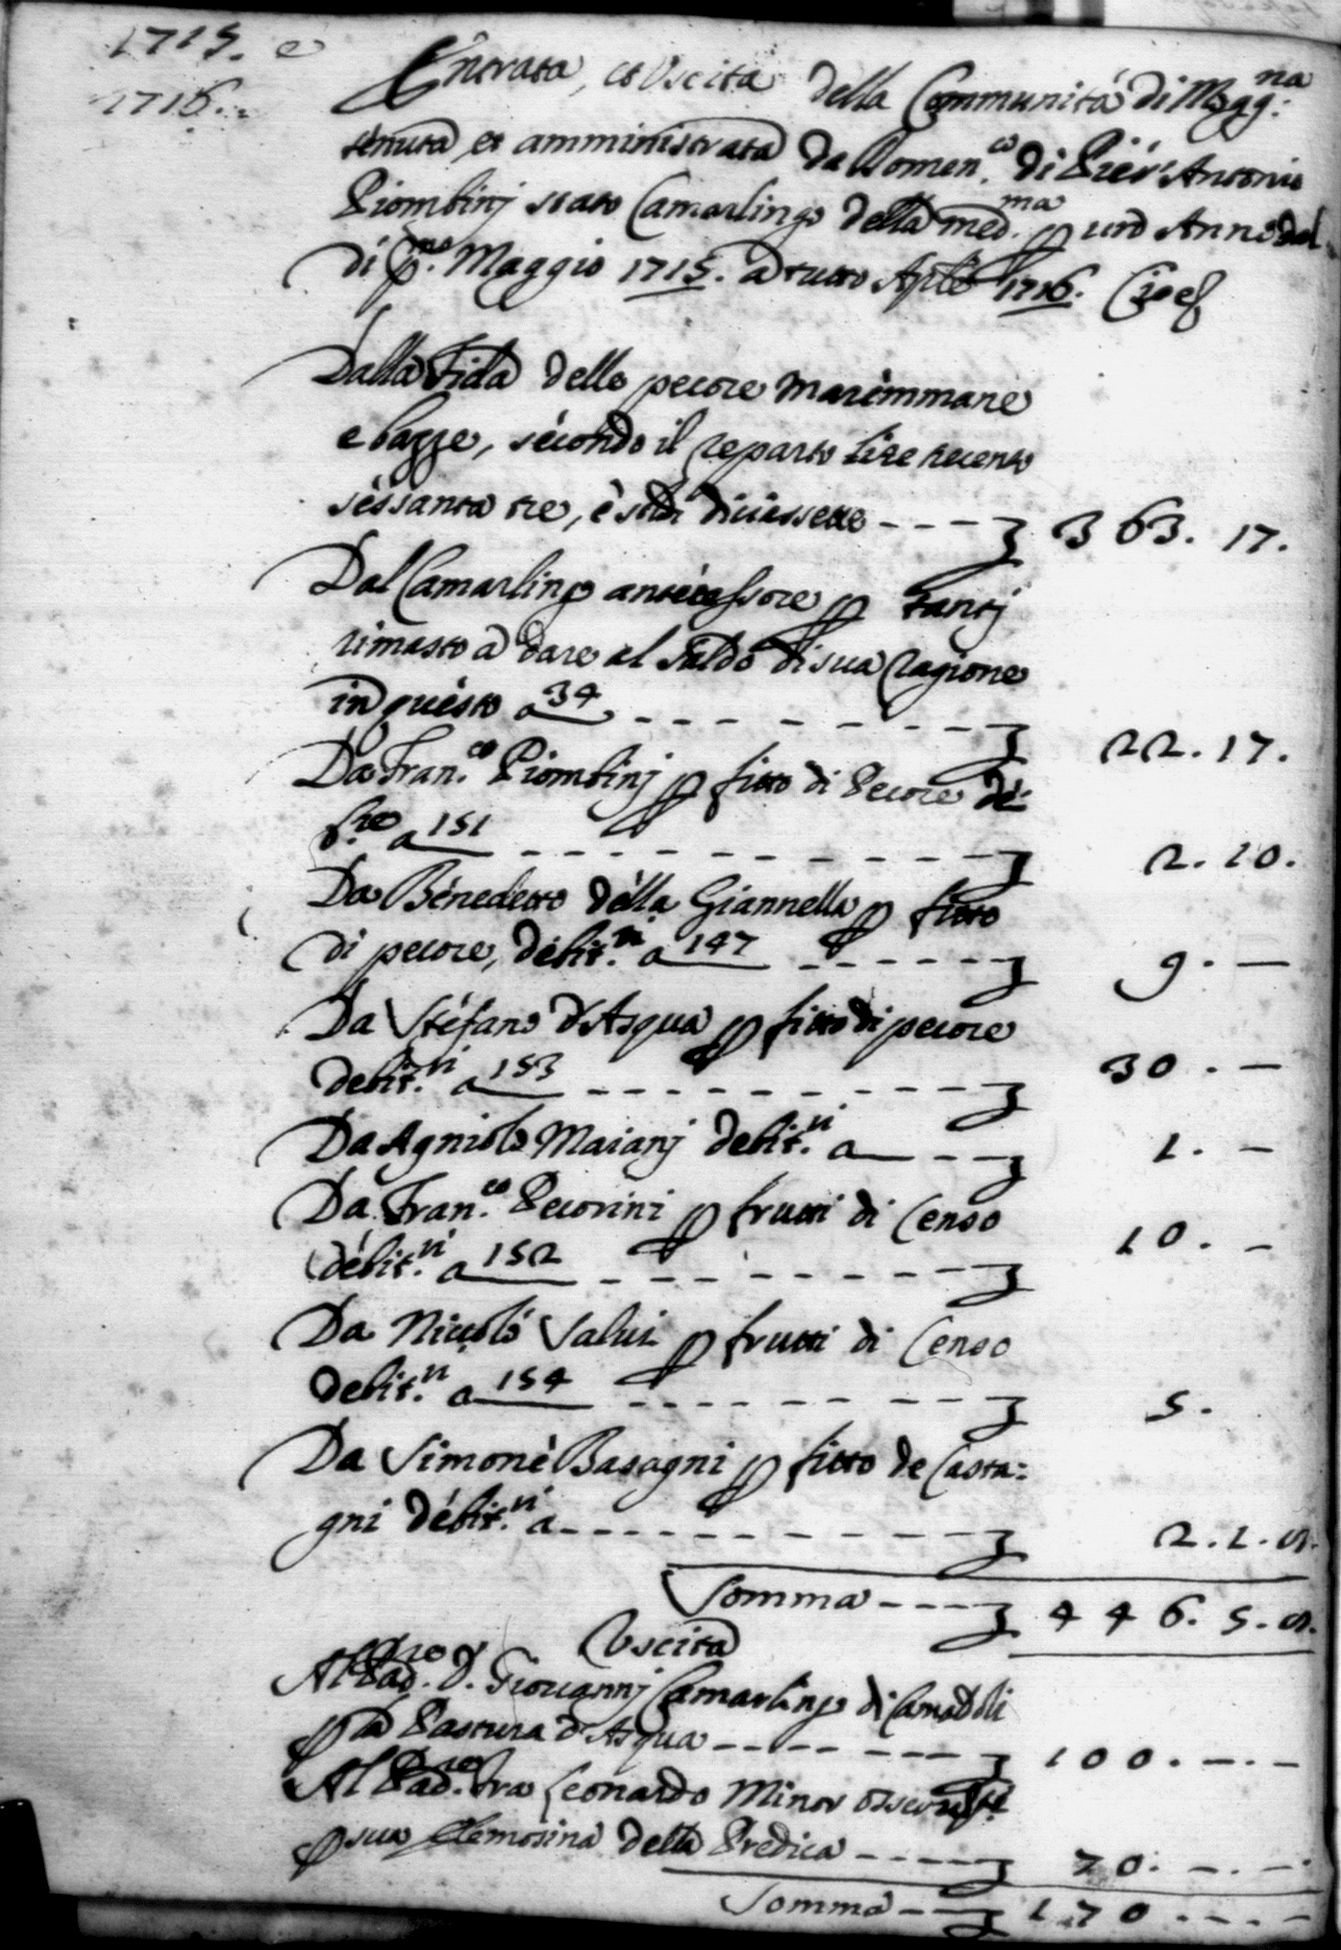 1715. e
1716.
Entrata, et Uscita della Communità di Mogg:na
tenuta, et amministrata da Domen.co di Pier' Antonio
Piombinj stato Camarlingo della med.ma p un Anno dal
dì p.mo Maggio 1715. a tutto Aprile 1716. Cioè
Dalla Fida delle pecore Maremmane
e bagge, secondo il reparto lire trecento
sessanta tre, è soldi diciessette - - - - 363. 17.
Dal Camarlingo antecessore p tantj
rimasto à dare al saldo di sua ragione
in questo a 34 - - - - - - - - - 22. 17.
Da Fran.co Piombinj p fitto di Pecore de=
b.re a 151 - - - - - - - - - - - 2. 10.
Da Benedetto della Giannella p fitto
di pecore, debit.ri a 147 - - - - - - 9. —
Da Stefano d'Asqua p fitto di pecore
debit.ri a 153 - - - - - - - - - - 30. —
Da Agniolo Maianj debit.ri a — - - 1. —
Da Fran.co Pecorini p frutti di Censo
debit.ri a 152 - - - - - - - - - 10. —
Da Niccolò Salvi p frutti di Censo
debit.ri a 154 - - - - - - - - 5.
Da Simone Basagni p fitto de Casta=
gni debit.ri a - - - - - - - - - - 2. 1.
Somma - - - - 446. 5.
Uscita
Al Pad.re D. Giovannj Camarlingo di Camaldoli
p la Pastura d'Asqua - - - - - - - 100. — . —
Al Pad.re Fra Leonardo Minor
p sua elemosina della Predica - - - - - 70. — . —
Somma - - - 170. - . -